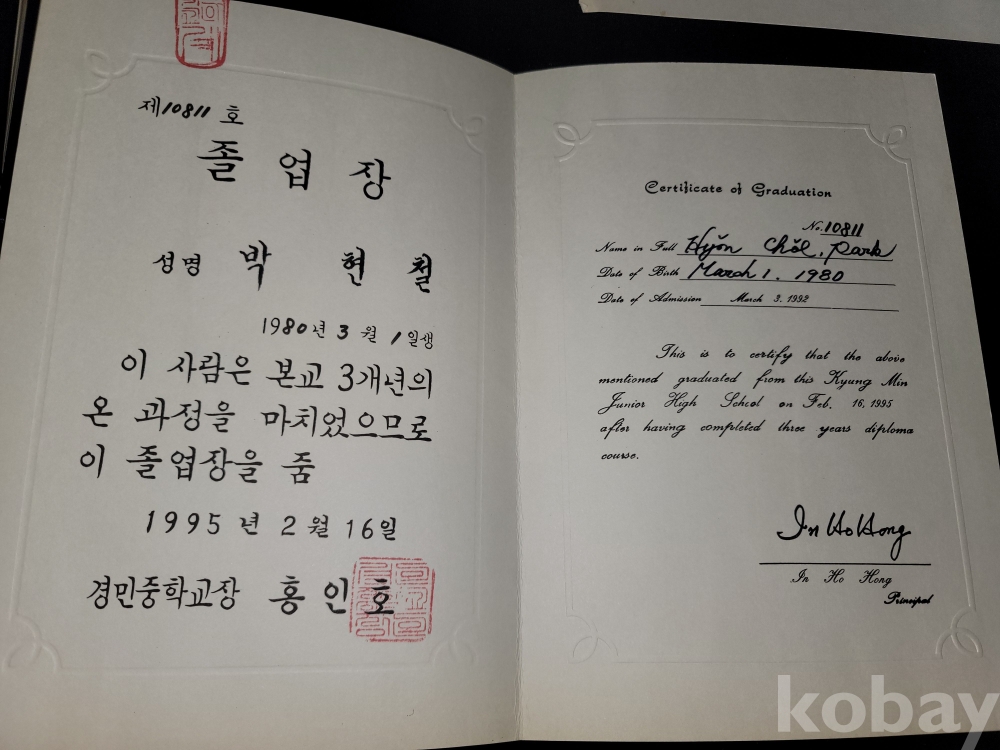 제10811 호
졸 업 장
성명 박 현 철
1980년 3월 1일생
이 사람은 본교 3개년의
온 과정을 마치었으므로
이 졸업장을 줌
1995년 2월 16일
경민중학교장 홍인호
Certificate of Graduation
No. 10811
Name in Full Hyŏn Chŏl, Park
Date of Birth March 1. 1980
Date of Admission March 3. 1992
This is to certify that the above
mentioned graduated from this Kyung Min
Junior High School on Feb. 16, 1995
after having completed three years diploma
course.
In Ho Hong
In Ho Hong
Principal
kobay